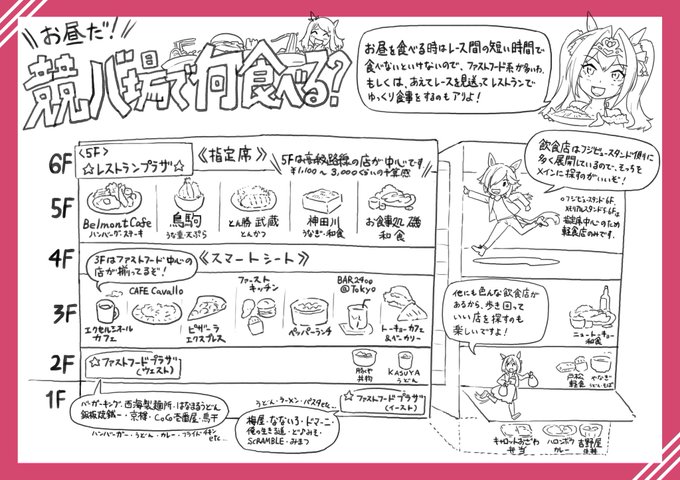 お昼だ!
競バ場で何食べる?
お昼を食べる時はレース間の短い時間で
食べないといけないので、ファストフード系が多いわ。
もしくは、あえてレースを見送ってレストランで
ゆっくり食事をするのもアリよ!
6F
<5F>
☆レストランプラザ
《指定席》
5Fは高級路線の店が中心です
¥1,100~3,000くらいの予算感
5F
Belmont Cafe
ハンバーグ・ステーキ
鳥駒
うな重・天ぷら
とん勝 武蔵
とんかつ
神田川
うなぎ・和食
お食事処 磯
和食
4F
《スマートシート》
3Fはファストフード中心の
店が揃ってるぞ!
3F
エクセルシオール
カフェ
CAFE Cavallo
ピザーラ
エクスプレス
ファースト
キッチン
ペッパーランチ
BAR2400
@Tokyo
トーキョーカフェ
&ベーカリー
2F
☆ファストフードプラザ
(ウェスト)
丼物
KASUYA
うどん
1F
☆ファストフードプラザ
(イースト)
バーガーキング・西海製麺所・はなまるうどん
鉄板焼鐵一・京樽・CoCo壱番屋・鳥千
ハンバーガー・うどん・カレー・フライドチキン
etc...
うどん・ラーメン・パスタetc...
梅屋・なないろ・ドマーニ
俺の生きる道・ど♪みそ
SCRAMBLE・みまつ
飲食店はフジビュースタンド側に
多く展開しているので、そっちを
メインに探すのがいいぞ!
○フジビュースタンド6F、
メモリアルスタンド5・6Fは
指定席中心のため
軽食店のみです。
他にも色んな飲食店が
あるから、歩き回って
いい店を探すのも
楽しいですよ!
ニュートーキョー
和食
戸松
軽食
やなぎ
キャロットおざわ
弁当
ハロンボウ
カレー
吉野屋